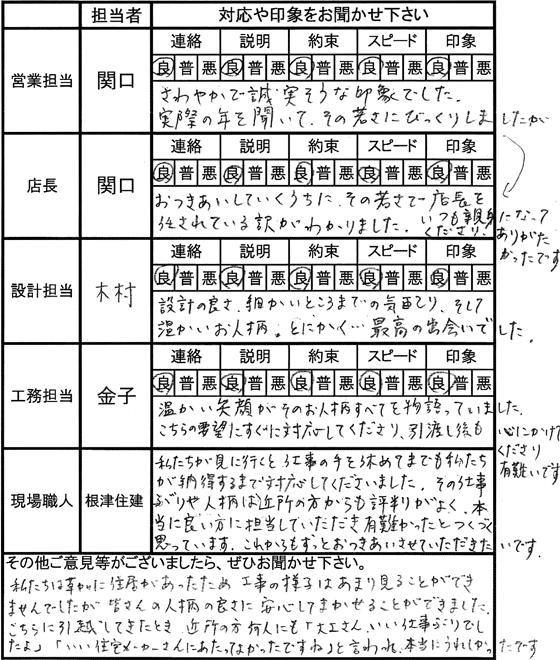 担当者 対応や印象をお聞かせ下さい
営業担当 関口
連絡 説明 約束 スピード 印象
良 普 悪 良 普 悪 良 普 悪 良 普 悪 良 普 悪
さわやかで誠実そうな印象でした。
実際の年を聞いて、その若さにびっくりしましたが
店長 関口
連絡 説明 約束 スピード 印象
良 普 悪 良 普 悪 良 普 悪 良 普 悪 良 普 悪
おつきあいしていくうちに、その若さで店長を
任されている訳がわかりました。いつも親身になって
くださり、ありがた
かったです
設計担当 木村
連絡 説明 約束 スピード 印象
良 普 悪 良 普 悪 良 普 悪 良 普 悪 良 普 悪
設計の良さ、細かいところまでの気配り、そして
温かいお人柄。とにかく…最高の出会いでした。
工務担当 金子
連絡 説明 約束 スピード 印象
良 普 悪 良 普 悪 良 普 悪 良 普 悪 良 普 悪
温かい笑顔がそのお人柄すべてを物語っていました。
こちらの要望にすぐに対応してくださり、引渡し後も心にかけて
くださり
有難いです
現場職人 根津住建
私たちが見に行くと仕事の手を休めてまでも私たち
が納得するまで対応してくださいました。その仕事
ぶりや人柄は近所の方からも評判がよく、本
当に良い方に担当していただき有難かったとつくづく
思っています。これからもずっとおつきあいさせていただきたいです。
その他ご意見等がございましたら、ぜひお聞かせ下さい。
私たちは草加に住居があったため、工事の様子はあまり見ることができ
ませんでしたが皆さんの人柄の良さに安心してまかせることができました。
こちらに引越してきたとき、近所の方何人にも「大工さん、いい仕事ぶりでし
たよ」「いい住宅メーカーさんにあたってよかったですね」と言われ、本当にうれしかったです